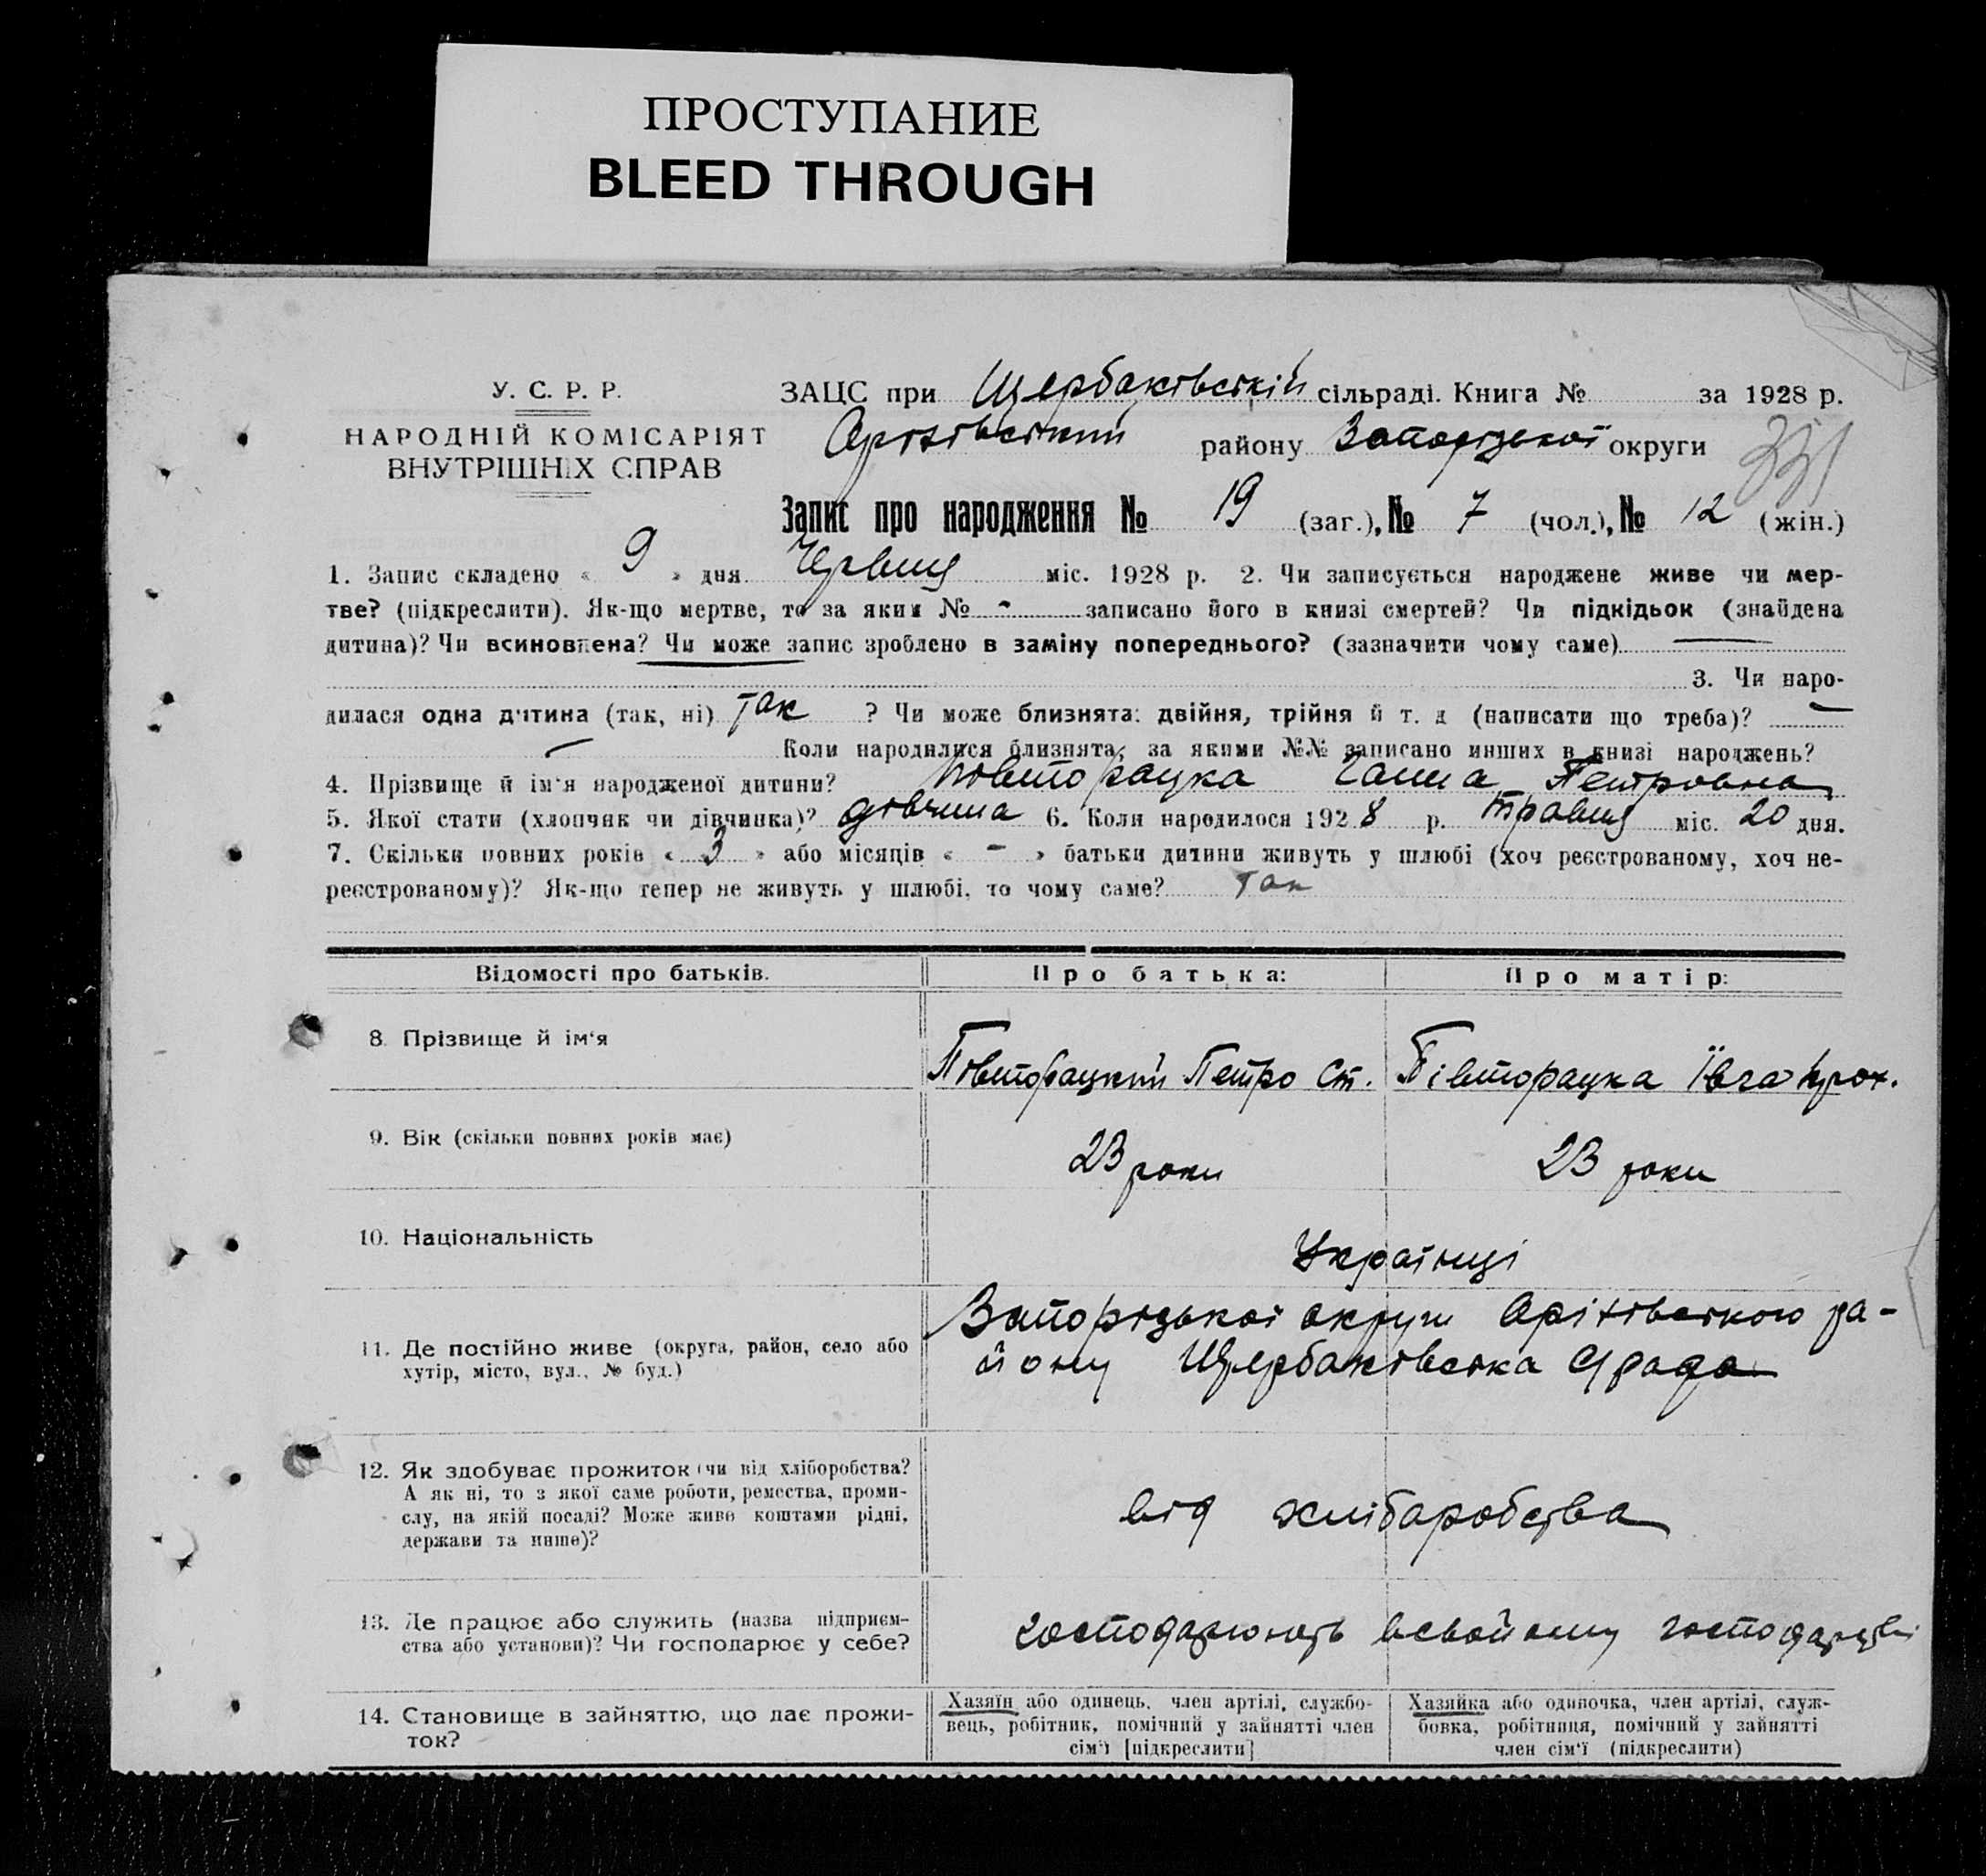 ПРОСТУПАНИЕ
BLEED THROUGH
У. С. Р. Р.
НАРОДНІЙ КОМІСАРІЯТ
ВНУТРІШНІХ СПРАВ
ЗАЦС при Щербаківській сільраді. Книга № за 1928 р.
Оріхівський району Запорізької округи
331
Запис про народження № 19 (заг.), № 7 (чол.), № 12 (жін.)
1. Запис складено « 9 » дня Червня міс. 1928 р. 2. Чи записується народжене живе чи мер-
тве? (підкреслити). Як-що мертве, то за яким № - записано його в книзі смертей? Чи підкідьок (знайдена
дитина)? Чи всиновлена? Чи може запис зроблено в заміну попереднього? (зазначити чому саме) —
3. Чи наро-
дилася одна дитина (так, ні) так ? Чи може близнята: двійня, трійня й т. д (написати що треба)? —
— Коли народилися близнята, за якими №№ записано инших в книзі народжень?
4. Прізвище й ім‘я народженої дитини? Півторацка Ганна Петровна
5. Якої стати (хлопчик чи дівчинка)? дівчина 6. Коли народилося 1928 р. травня міс. 20 дня.
7. Скільки повних років « 3 » або місяців « - » батьки дитини живуть у шлюбі (хоч реєстрованому, хоч не-
реєстрованому)? Як-що тепер не живуть у шлюбі, то чому саме? так
Відомості про батьків. Про батька: Про матір:
8. Прізвище й ім‘я Півторацкий Петро Ст. Півторацка Ївга Прох.
9. Вік (скільки повних років має) 23 роки 23 роки
10. Національність Українці
11. Де постійно живе (округа, район, село або
хутір, місто, вул., № буд.)
Запорізької округи Оріхівського ра-
йону Щербаківська С/рада
12. Як здобуває прожиток (чи від хліборобства?
А як ні, то з якої саме роботи, ремества, проми-
слу, на якій посаді? Може живе коштами рідні,
держави та инше)?
від хлібаробства
13. Де працює або служить (назва підприєм-
ства або установи)? Чи господарює у себе?
господарюють всвойому господарстві
14. Становище в зайняттю, що дає прожи-
ток?
Хазяїн або одинець, член артілі, службо-
вець, робітник, помічний у зайнятті член
сім‘ї [підкреслити]
Хазяйка або одиночка, член артілі, служ-
бовка, робітниця, помічний у зайнятті
член сім‘ї (підкреслити)